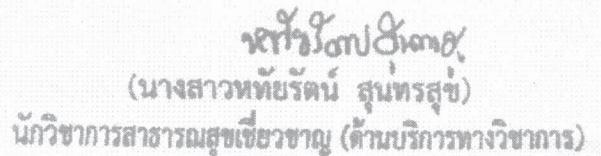 (นางสาวหทัยรัตน์ สุนทรสุข)
นักวิชาการสาธารณสุขเชี่ยวชาญ (ด้านบริการทางวิชาการ)